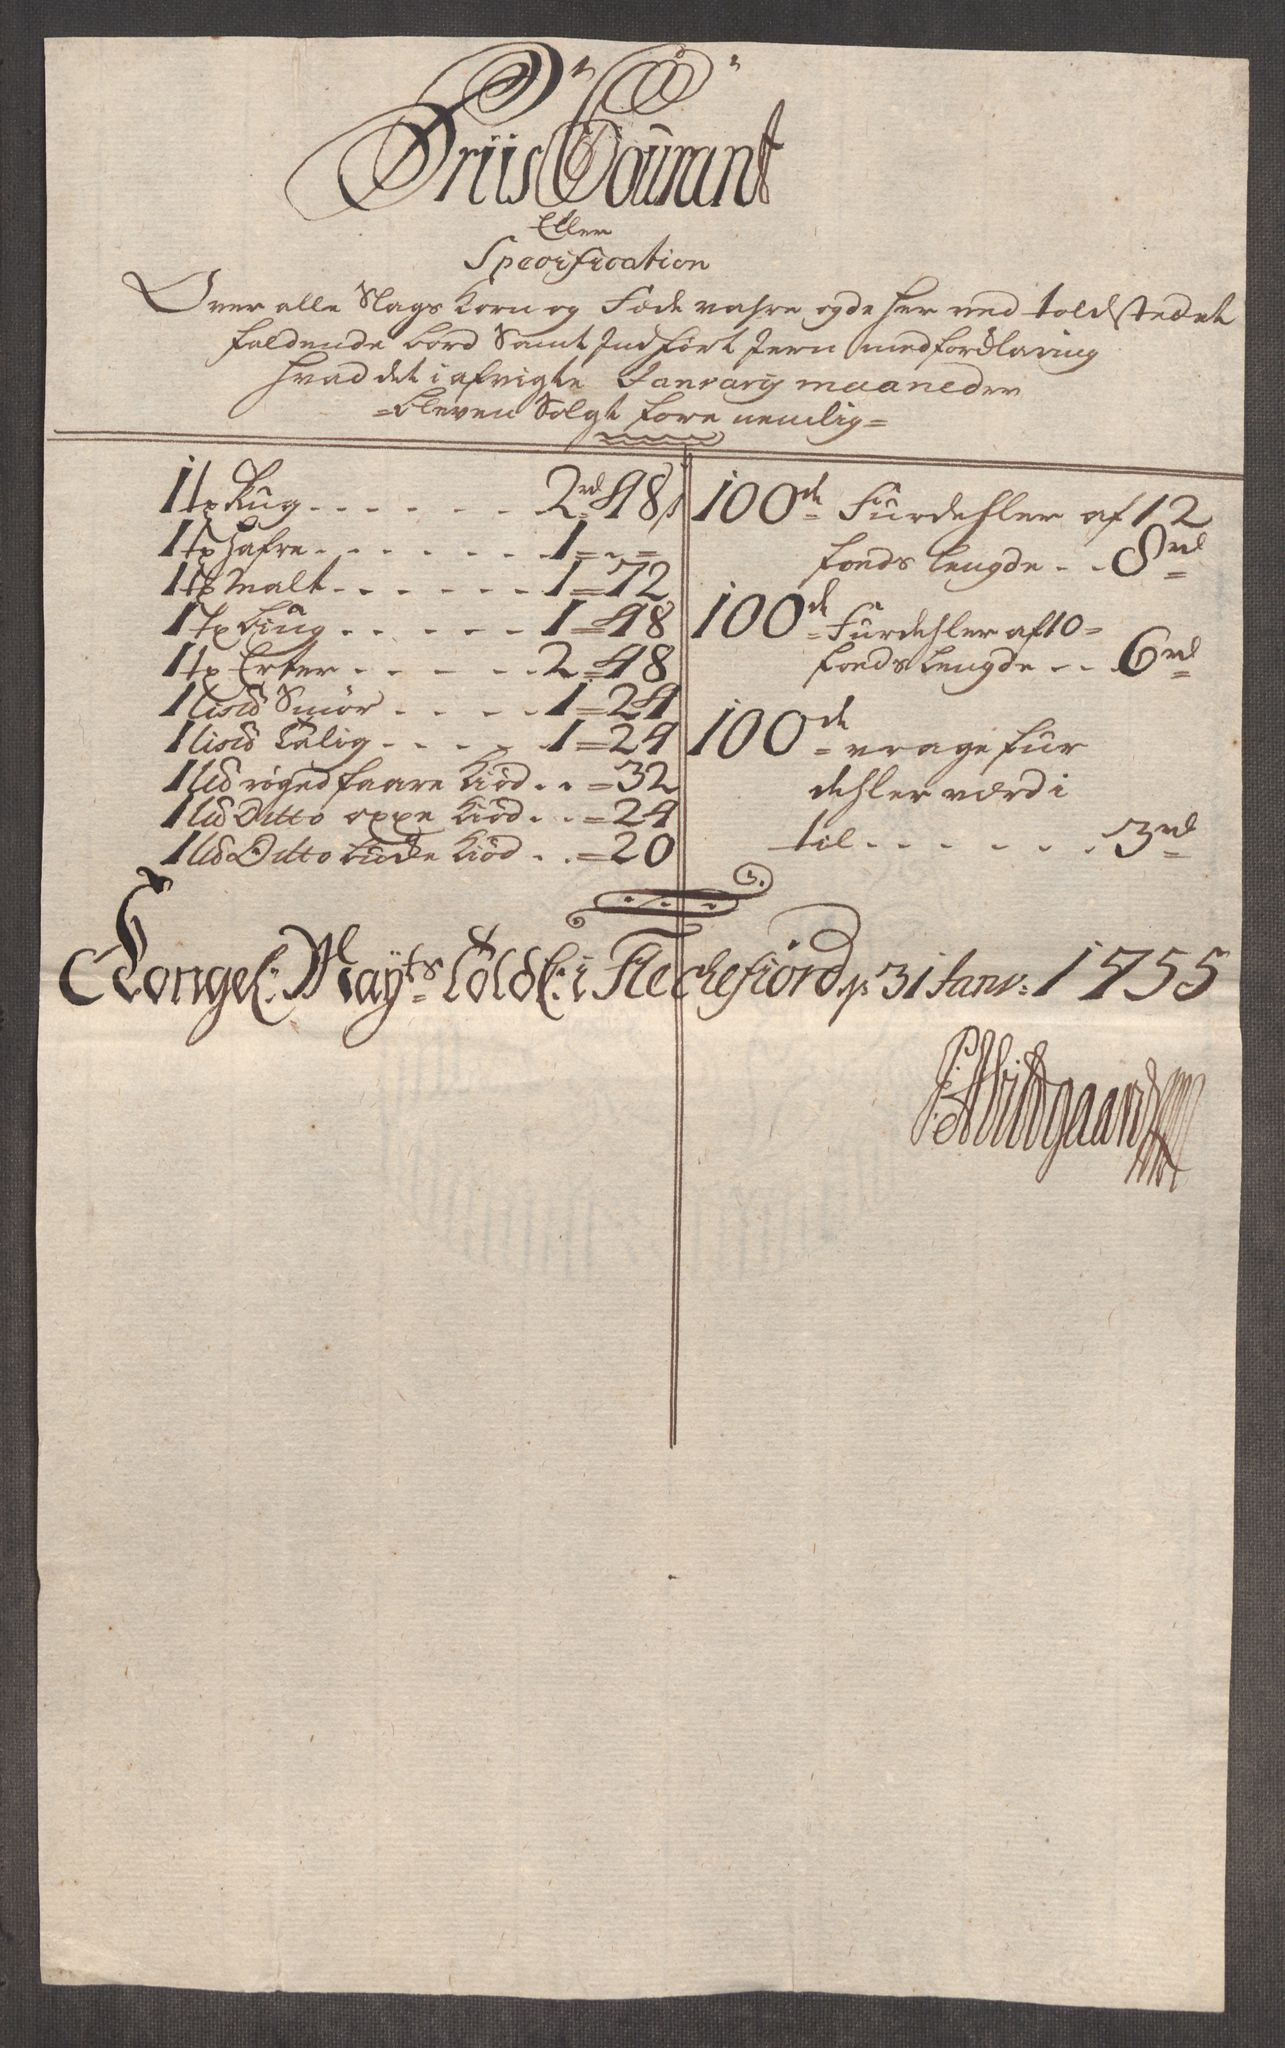 Priis Courant
Eller
Specification
Over alle Slags Korn og Føde vahre og de her ved toldstedet
faldende bord Samt Indført Jern med forklaring
hvad det i afvigte January maaneder
=bleven Solgt fore nemlig=
1 tø Rug . . . . . . 2rd 48s
1 tø hafre . . . . . . 1 = " =
1 tø Malt . . . . . . 1 = 72
1 tø Biug . . . . . 1 = 48
1 tø Erter . . . . . 2 = 48
1 lisb Smør . . . . 1 = 24
1 lisb Talig . . . . 1 = 24
1 lb røged faare Kiød . . = 32
1 lb Ditto oxe Kiød . . = 24
1 lb Ditto bucke Kiød . . = 20
100de Furdehler af 12
foeds lengde . . 8rd
100de Furdehler af 10=
foeds lengde . . 6rd
100de vrage fur
dehler værdi
til . . . . . . 3rd
Kongel: Mayts Toldb: i Fleckefiord p 31 Janv: 1755
P: Abildgaard